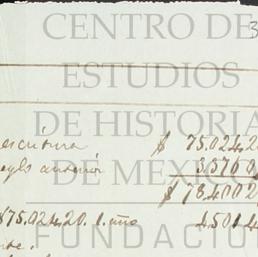 3
CENTRO DE
ESTUDIOS
DE HISTORIA
DE MEXICO
FUNDACIÓN
escritura $ 75.024.2
reglo anterior 3376 0
$ 78.400 2
$75.024.20. 1. año 4.501 4